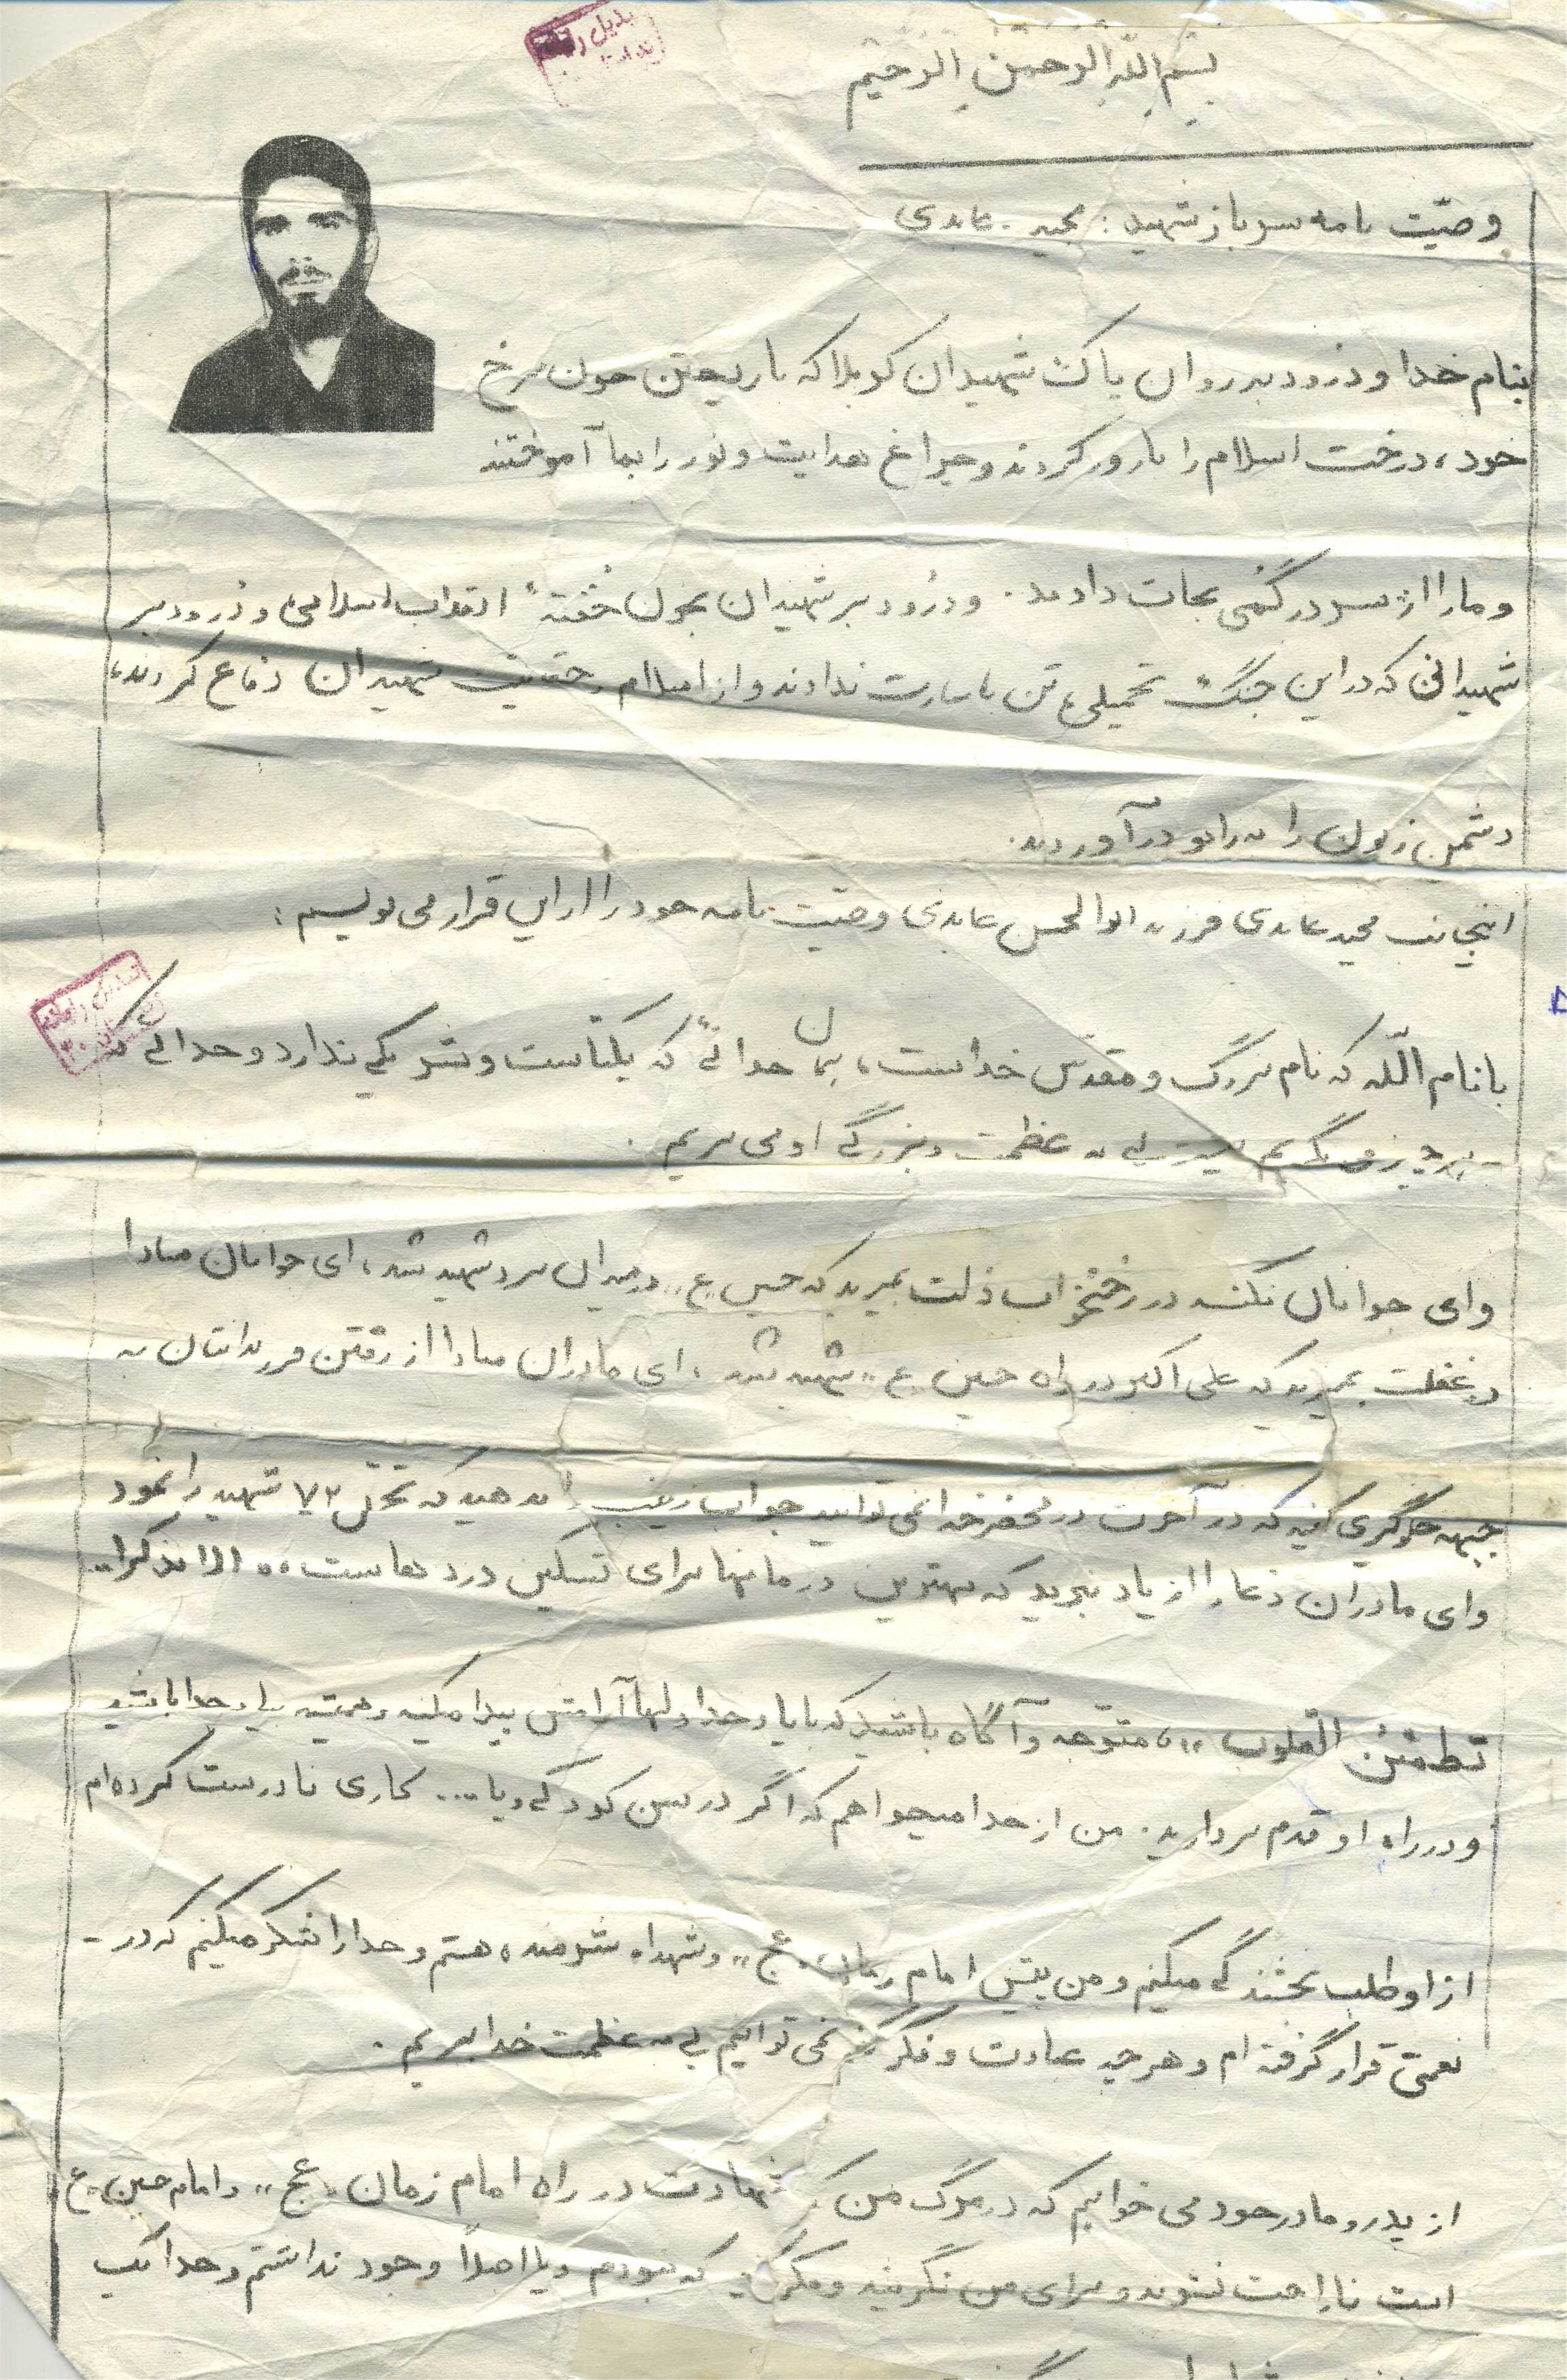 بسم الله الرحمن الرحیم
وصیّت نامه سرباز شهید : مجید - عابدی
بنام خدا و درود بر روان پاک شهیدان کربلا که با ریختن خون سرخ
خود، درخت اسلام را بارور کردند و چراغ هدایت و نور را بما آموختند
و ما را از سردرگمی نجات دادند. و درود بر شهیدان بخون خفتهٔ انقلاب اسلامی و درود بر
شهیدانی که در این جنگ تحمیلی تن باسارت ندادند و از اسلام و حقانیت شهیدان دفاع کردند،
دشمن زبون را به زانو درآوردند.
اینجانب مجید عابدی فرزند ابوالحسن عابدی وصیّت نامه خود را از این قرار می نویسم :
با نام اللّه که نام بزرگ و مقدّس خداست، همان خدائی که یکتاست و شریکی ندارد و خدائی که
هرچه بنگریم بیشتر پی به عظمت و بزرگی او می بریم .
وای جوانان نکند در رختخواب ذلت بمیرید که حسین "ع" در میدان نبرد شهید شد، ای جوانان مبادا
در غفلت بمیرید که علی اکبر در راه حسین "ع" شهید شد ، ای مادران مبادا از رفتن فرزندانتان به
جبهه جلوگیری کنید که در آخرت در محضر خدا نمی توانید جواب زینب را بدهید که تحمّل ۷۲ شهید را نمود
وای مادران دعا را از یاد نبرید که بهترین درمانها برای تسکین دردهاست، "الا بذکرا..
تطمئن القلوب"، متوجه و آگاه باشید که با یاد خدا دلها آرامش پیدا میکند و همیشه بیاد خدا باشید
و در راه او قدم بردارید. من از خدا میخواهم که اگر در سن کودکی و یا ... کاری نادرست کرده ام
از او طلب بخشندگی میکنم و من پیش امام زمان "عج" و شهداء شرمنده هستم و خدا را شکر میکنم که در -
نعمتی قرار گرفته ام و هر چه عبادت و فکر کنم نمی توانیم پی به عظمت خدا ببریم .
از پدر و مادر خود می خواهم که در مرگ من که شهادت در راه امام زمان "عج" و امام حسین "ع"
است ناراحت نشوند و برای من نگریند و فکر کنید که نبودم و یا اصلاً وجود نداشتم و خدا یک